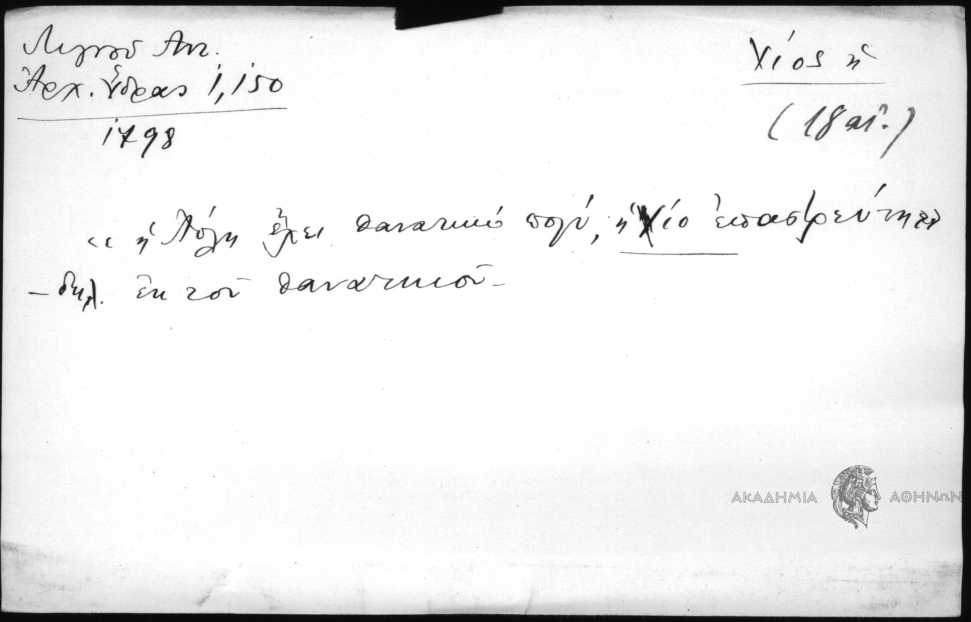 Λιγνοῦ Αντ.
Ἀρχ. Ὕδρας 1,150
1798
Χίος ἡ
(18 αἰ.)
« ἡ Πόλη ἔχει θανατικό πολύ, ἡ Χίο ἐπαστρεύτη »
– δηλ. ἐκ τοῦ θανατικοῦ –
ΑΚΑΔΗΜΙΑ ΑΘΗΝΩΝ